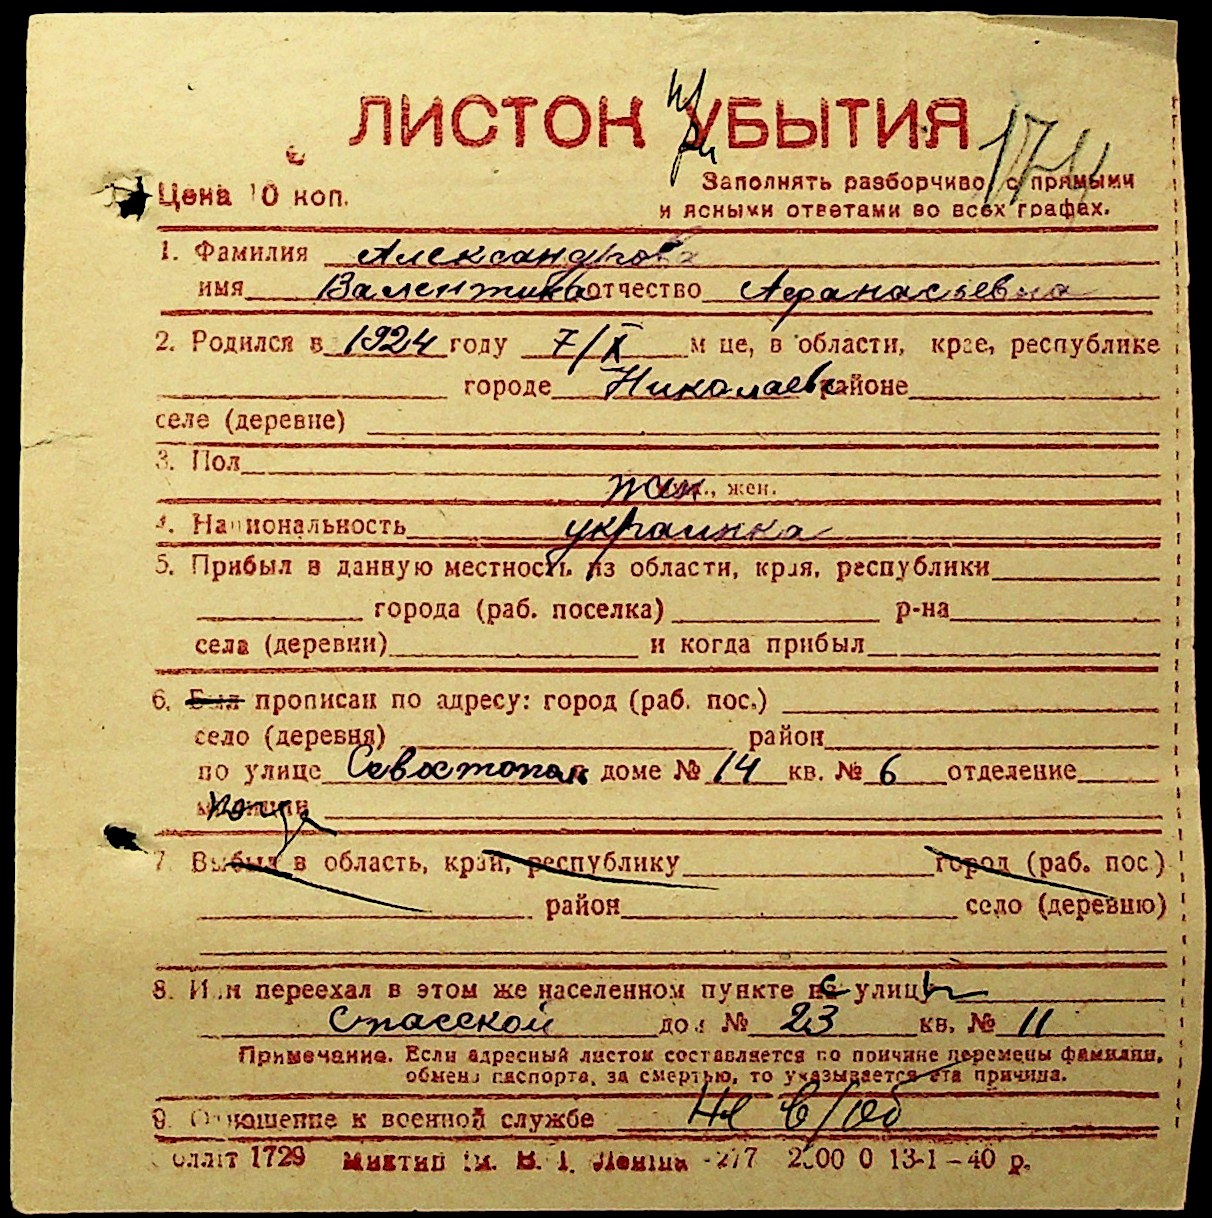 ЛИСТОК УБЫТИЯ
при
174
Цена 10 коп.
Заполнять разборчиво с прямыми
и ясными ответами во всех графах.
1. Фамилия Александрова
имя Валентина отчество Афанасьевна
2. Родился в 1924 году 7/X м це, в области, крае, республике
городе Николаеве районе
селе (деревне)
3. Пол
жен муж., жен.
4. Национальность украинка
5. Прибыл в данную местность из области, края, республики
города (раб. поселка) р-на
села (деревни) и когда прибыл
6. Был прописан по адресу: город (раб. пос.)
село (деревня) район
по улице Севастопол в доме № 14 кв. № 6 отделение
милиции
7. Выбыл в область, край, республику город (раб. пос.)
район село (деревню)
8. Или переехал в этом же населенном пункте с улицы
Спасской дом № 23 кв. № 11
Примечание. Если адресный листок составляется по причине перемены фамилии,
обмена паспорта, за смертью, то указывается эта причина.
9. Отношение к военной службе Не в/об
1729 ім. В. І. Леніна 277 2000 0 13-1-40 р.